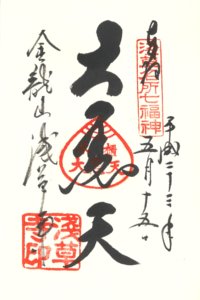 奉拝
浅草名所七福神
平成二十三年
五月十五日
大黒天
金龍山浅草寺
浅草寺印